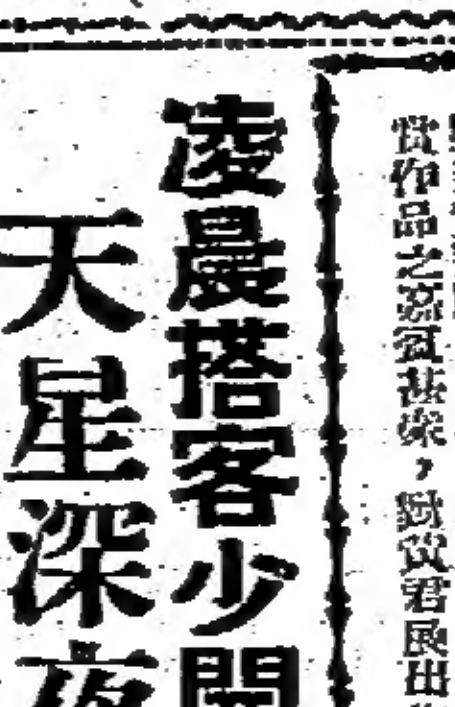 賞作品之嘉賓甚衆，對君展出
凌晨搭客少
天星深夜